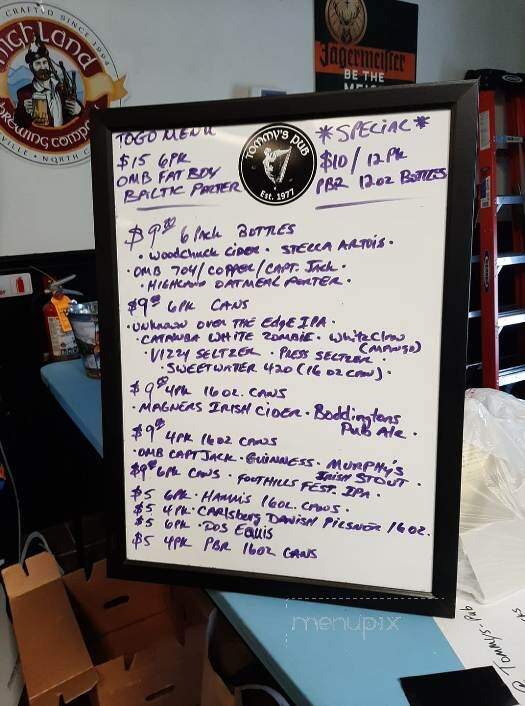 CRAFTED SINCE 1994
HIGHLAND
BREWING COMP
VILLE • NORTH C
Jägermeister
BE THE
TOGO MENU
$15 6PK
OMB FAT BOY
BALTIC PORTER
TOMMY'S PUB
Est. 1977
*SPECIAL*
$10/12PK
PBR 12oz BOTTLES
6 PACK BOTTLES
• WOODCHUCK CIDER • STELLA ARTOIS •
• OMB 704/COPPER/CAPT. JACK •
• HIGHLAND OATMEAL PORTER •
6PK CANS
• UNKNOWN OVER THE EDGE IPA •
• CATAWBA WHITE ZOMBIE • WhiteClaw
(MANGO)
• VIZZY SELTZER • PRESS SELTZER •
• SWEETWATER 420 (16 OZ CAN) •
4PK 16OZ. CANS
• MAGNERS IRISH CIDER • Boddingtons
Pub Ale •
4PK 16OZ CANS
• OMB CAPT JACK • GUINNESS • MURPHY'S
IRISH STOUT •
6PK CANS • FOOTHILLS FEST. IPA •
$5 6PK • HAMMS 16OZ. CANS •
$5 4PK • CARLSBERG DANISH PILSNER 16OZ.
$5 6PK • DOS EQUIS
$5 4PK PBR 16OZ CANS
menupix
@ Tommys-Pub